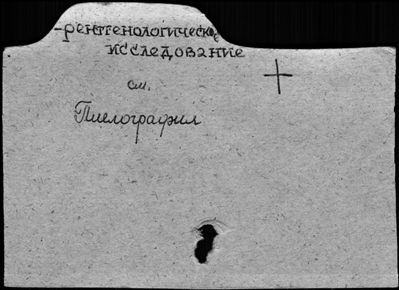 -рентгенологическое
исследование
см.
Пиелография